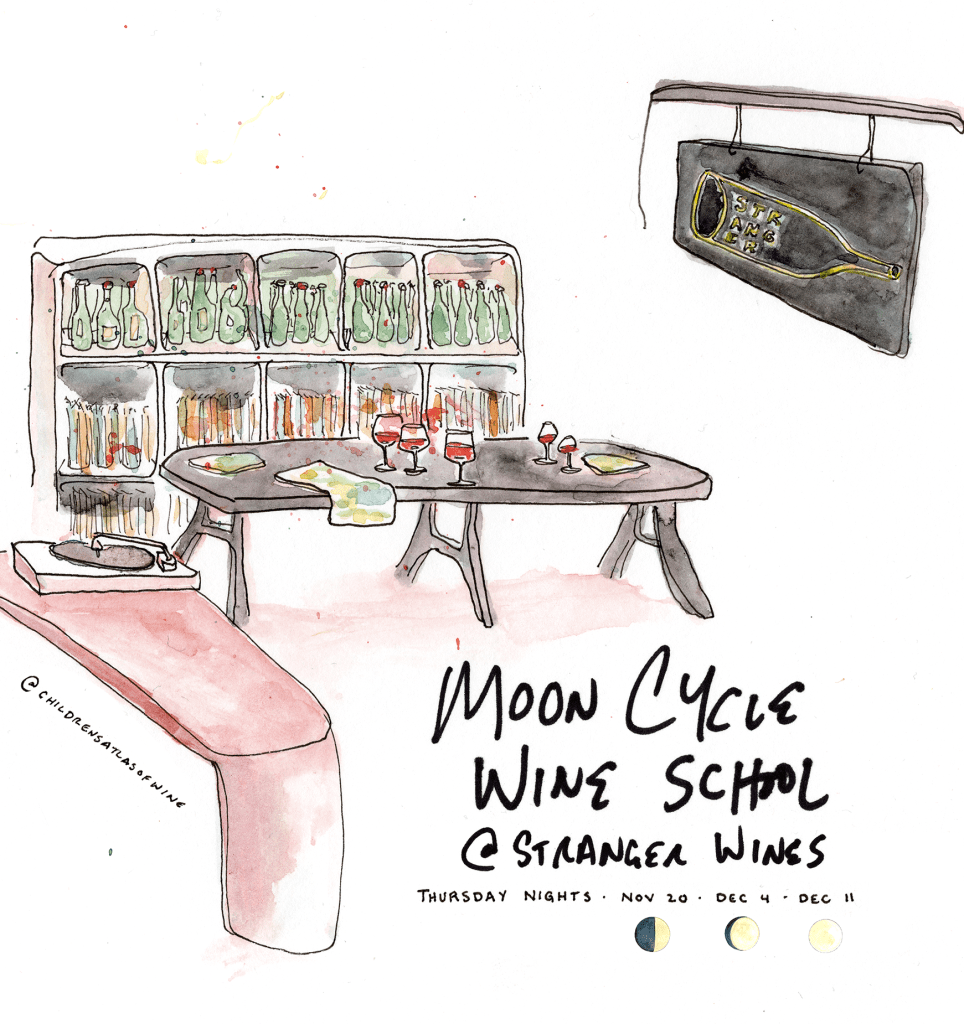 STR
ANG
ER
@CHILDRENSATLASOFWINE
MOON CYCLE
WINE SCHOOL
@ STRANGER WINES
THURSDAY NIGHTS · NOV 20 · DEC 4 · DEC 11